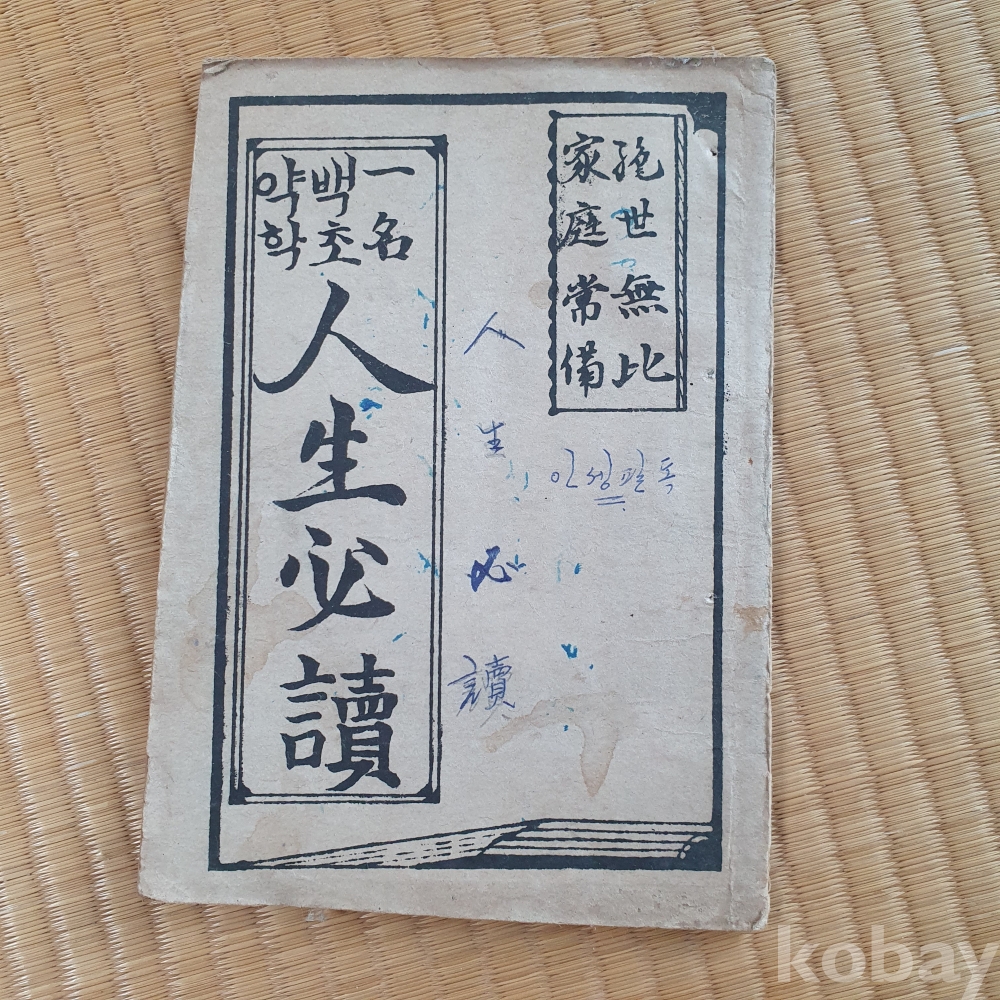 絶世無比
家庭常備
一名
백초
약학
人生必讀
人生必讀
인생필독
kobay